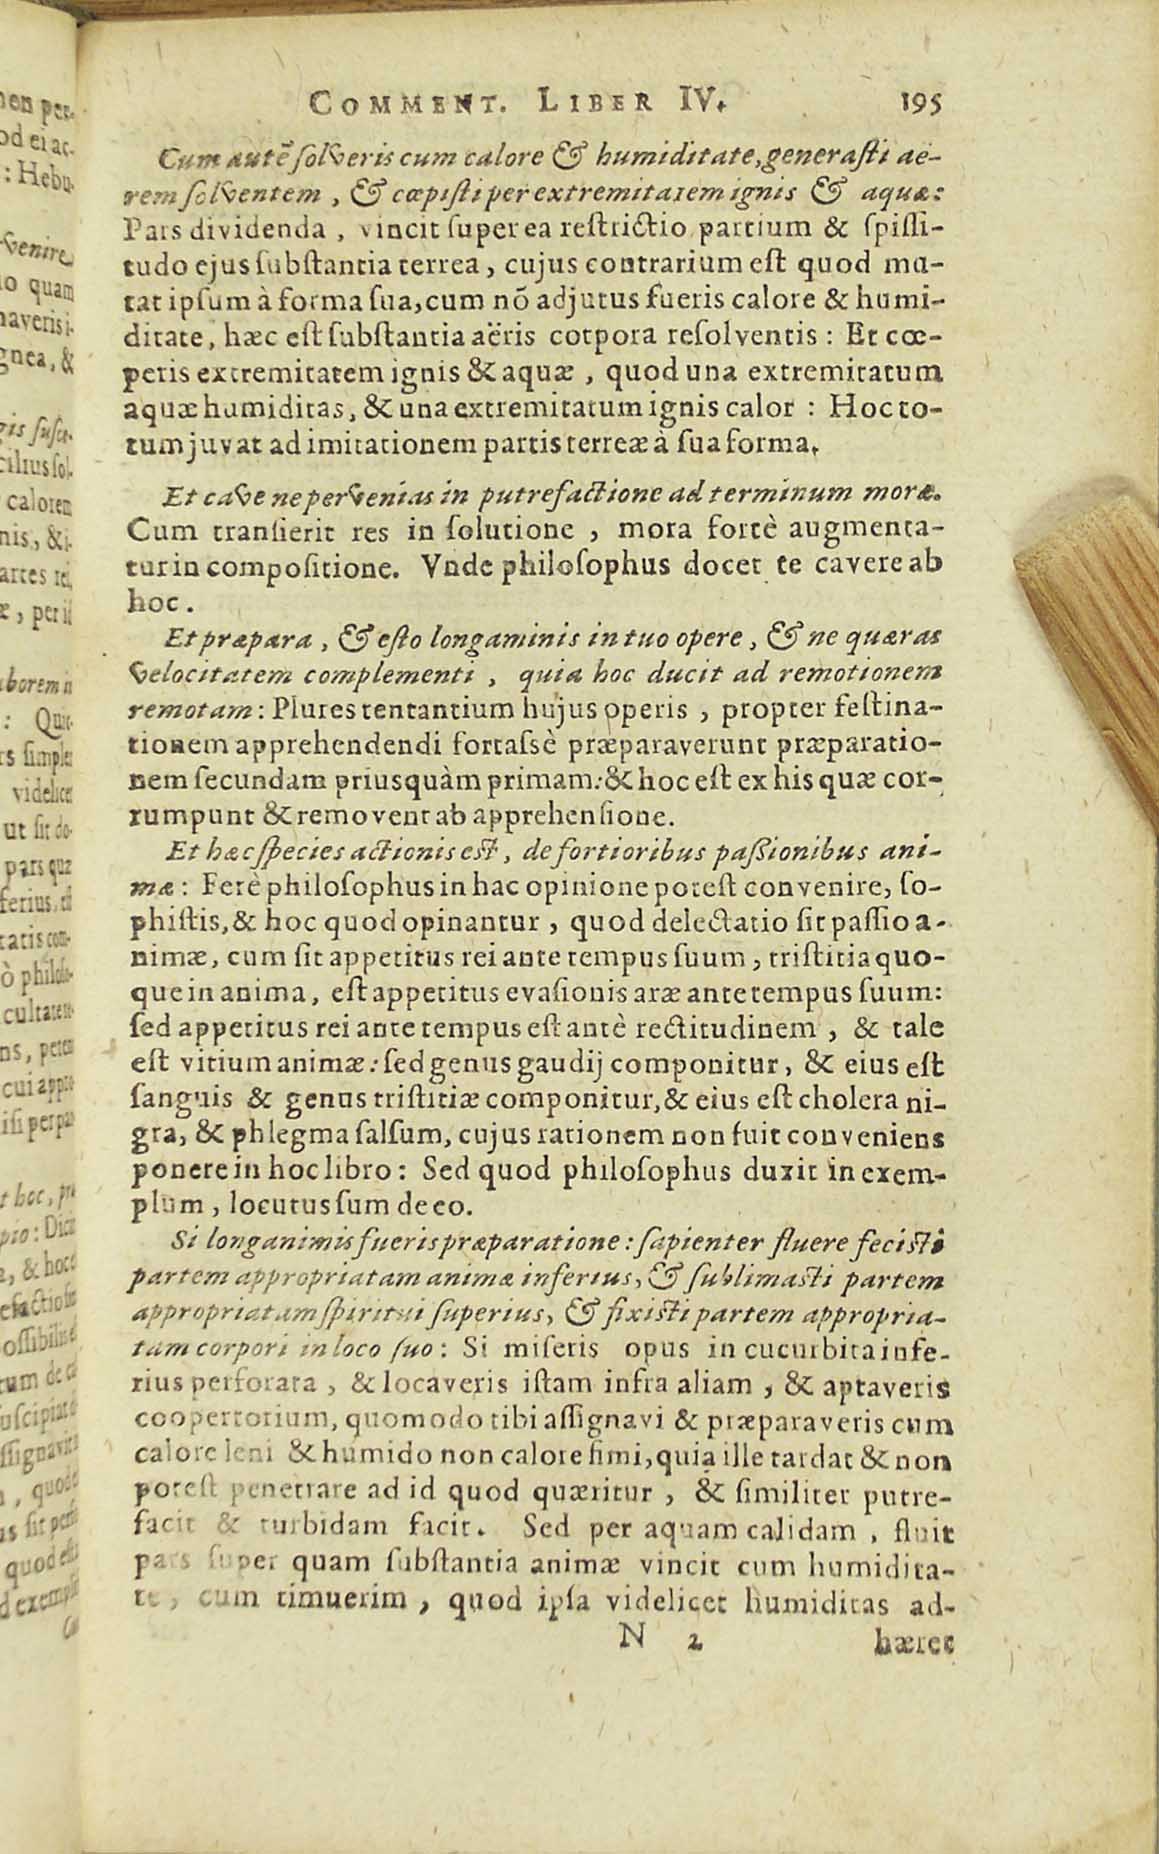 COMMENT. LIBER IV. 195
Cum autẽ solveris cum calore & humiditate, generasti ae-
rem solventem, & cœpisti per extremitatem ignis & aquæ:
Pars dividenda, vincit super ea restrictio partium & spissi-
tudo ejus substantia terrea, cujus contrarium est quod mu-
tat ipsum à forma sua, cum nõ adjutus fueris calore & humi-
ditate, hæc est substantia aëris corpora resolventis: Et cœ-
peris extremitatem ignis & aquæ, quod una extremitatum
aquæ humiditas, & una extremitatum ignis calor: Hoc to-
tum juvat ad imitationem partis terreæ à sua forma.
Et cave ne pervenias in putrefactione ad terminum moræ.
Cum transierit res in solutione, mora fortè augmenta-
tur in compositione. Vnde philosophus docet te cavere ab
hoc.
Et præpara, & esto longaminis in tuo opere, & ne quæras
velocitatem complementi, quia hoc ducit ad remotionem
remotam: Plures tentantium hujus operis, propter festina-
tionem apprehendendi fortassè præparaverunt præparatio-
nem secundam priusquàm primam: & hoc est ex his quæ cor-
rumpunt & removent ab apprehensione.
Et hæc species actionis est, de fortioribus passionibus ani-
mæ: Ferè philosophus in hac opinione potest convenire, so-
phistis, & hoc quod opinantur, quod delectatio sit passio a-
nimæ, cum sit appetitus rei ante tempus suum, tristitia quo-
que in anima, est appetitus evasionis aræ ante tempus suum:
sed appetitus rei ante tempus est antè rectitudinem, & tale
est vitium animæ: sed genus gaudij componitur, & eius est
sanguis & genus tristitiæ componitur, & eius est cholera ni-
gra, & phlegma salsum, cujus rationem non fuit conveniens
ponere in hoc libro: Sed quod philosophus duxit in exem-
plum, locutus sum de eo.
Si longanimis fueris præparatione: sapienter fluere fecisti
partem appropriatam animæ inferius, & sublimasti partem
appropriatam spiritui superius, & fixisti partem appropria-
tam corpori in loco suo: Si miseris opus in cucurbita infe-
rius perforata, & locaveris istam infra aliam, & aptaveris
coopertorium, quomodo tibi assignavi & præparaveris cum
calore leni & humido non calore fimi, quia ille tardat & non
potest penetrare ad id quod quæritur, & similiter putre-
facit & turbidam facit. Sed per aquam calidam, fluit
pars super quam substantia animæ vincit cum humidita-
te, cum timuerim, quod ipsa videlicet humiditas ad-
N 2 hæret